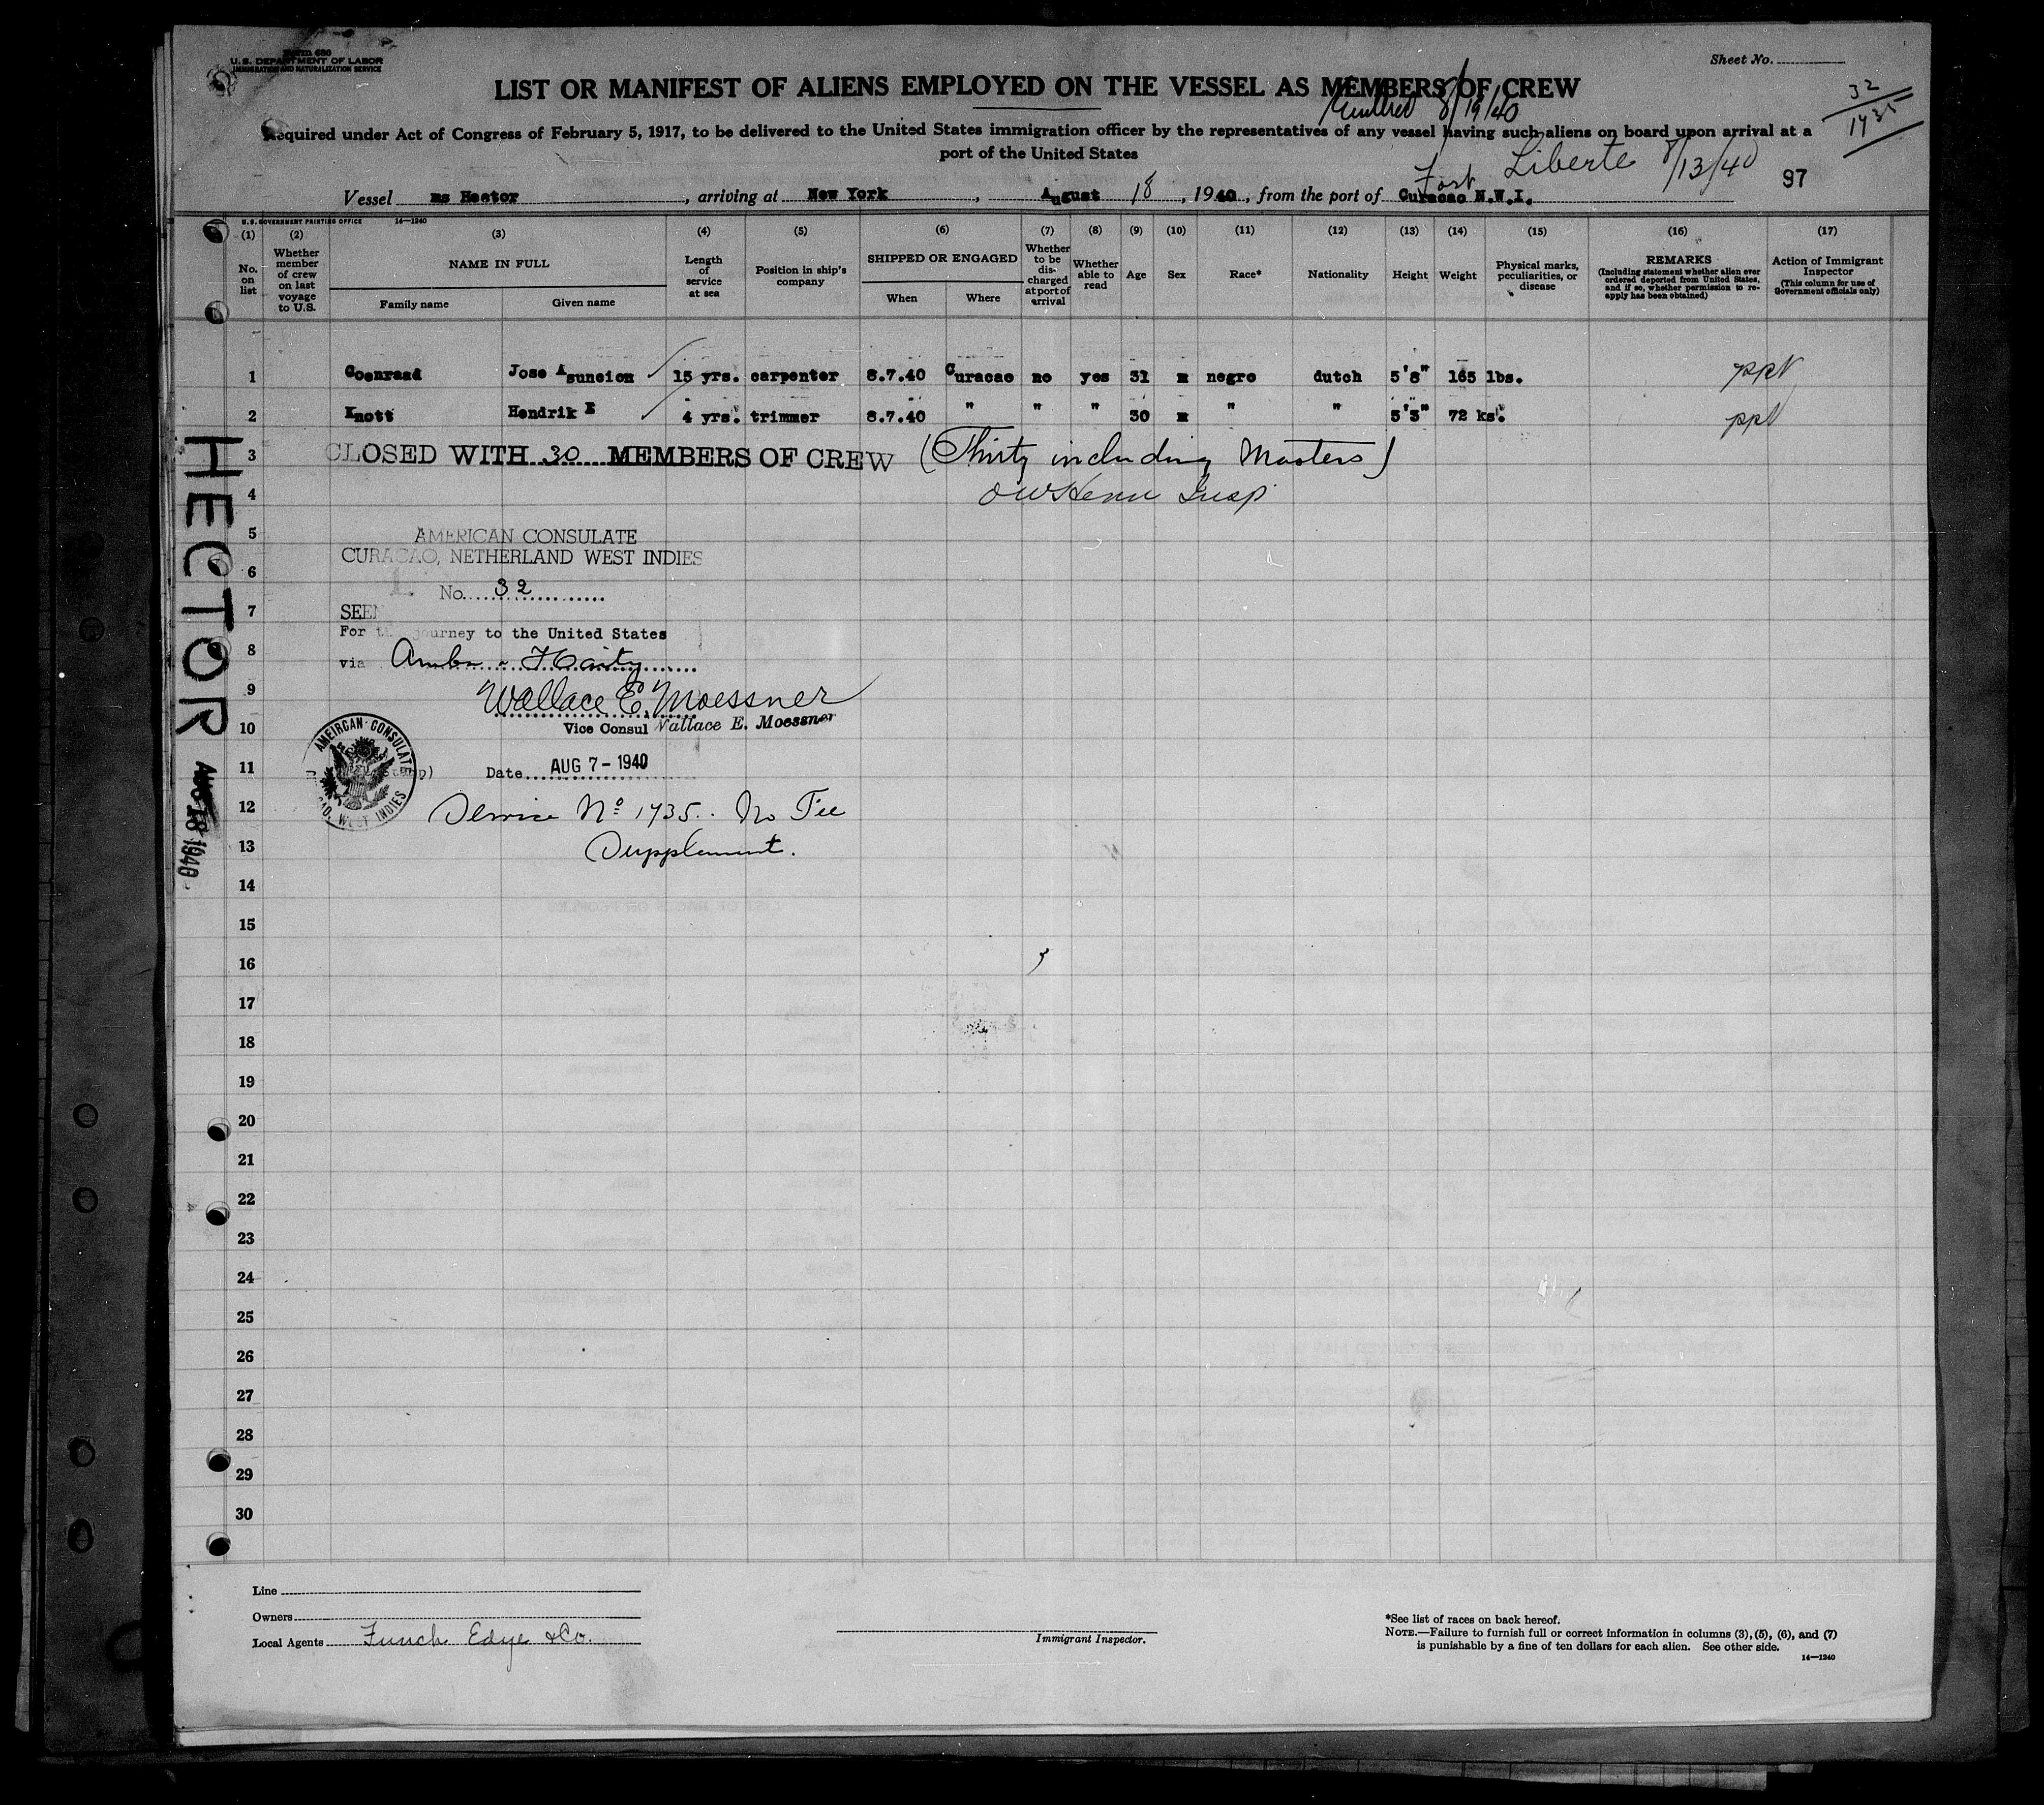 Form 680
U. S. DEPARTMENT OF LABOR
IMMIGRATION AND NATURALIZATION SERVICE
Sheet No.
LIST OR MANIFEST OF ALIENS EMPLOYED ON THE VESSEL AS MEMBERS OF CREW
8/19/40
32
1735
Required under Act of Congress of February 5, 1917, to be delivered to the United States immigration officer by the representatives of any vessel having such aliens on board upon arrival at a
port of the United States
Fort Liberte 8/13/40
97
Vessel ms Hector, arriving at New York, August 18, 1940, from the port of Curacao N.W.I.
U. S. GOVERNMENT PRINTING OFFICE 14—1240
(1) (2) (3) (4) (5) (6) (7) (8) (9) (10) (11) (12) (13) (14) (15) (16) (17)
No. on list
Whether member of crew on last voyage to U.S.
NAME IN FULL
Family name
Given name
Length of service at sea
Position in ship's company
SHIPPED OR ENGAGED
When
Where
Whether to be discharged at port of arrival
Whether able to read
Age
Sex
Race*
Nationality
Height
Weight
Physical marks, peculiarities, or disease
REMARKS
(Including statement whether alien ever ordered deported from United States, and if so, whether permission to reapply has been obtained)
Action of Immigrant Inspector
(This column for use of Government officials only)
1 Coenraad Jose Asuncion 15 yrs. carpenter 8.7.40 Curacao no yes 31 m negro dutch 5'8" 165 lbs. ppt
2 Knott Hendrik E 4 yrs. trimmer 8.7.40 " " " 30 m " " 5'5" 72 ks. ppt
3 CLOSED WITH 30 MEMBERS OF CREW (Thirty including Masters)
4 Insp
5 AMERICAN CONSULATE
CURACAO, NETHERLAND WEST INDIES
6
No. 32
7 SEEN
For the journey to the United States
8 via Aruba - Haity
9 Wallace E. Moessner
10 Vice Consul Wallace E. Moessner
AMEIRCAN CONSULATE
WEST INDIES
11 Date AUG 7 - 1940
12 Service No 1735.. No Fee
13 Supplement.
14
15
16
17
18
19
20
21
22
23
24
25
26
27
28
29
30
HECTOR
AUG 18 1940
Line
Owners
Local Agents Funch Edye & Co.
Immigrant Inspector.
*See list of races on back hereof.
NOTE.—Failure to furnish full or correct information in columns (3), (5), (6), and (7)
is punishable by a fine of ten dollars for each alien. See other side.
14—1240